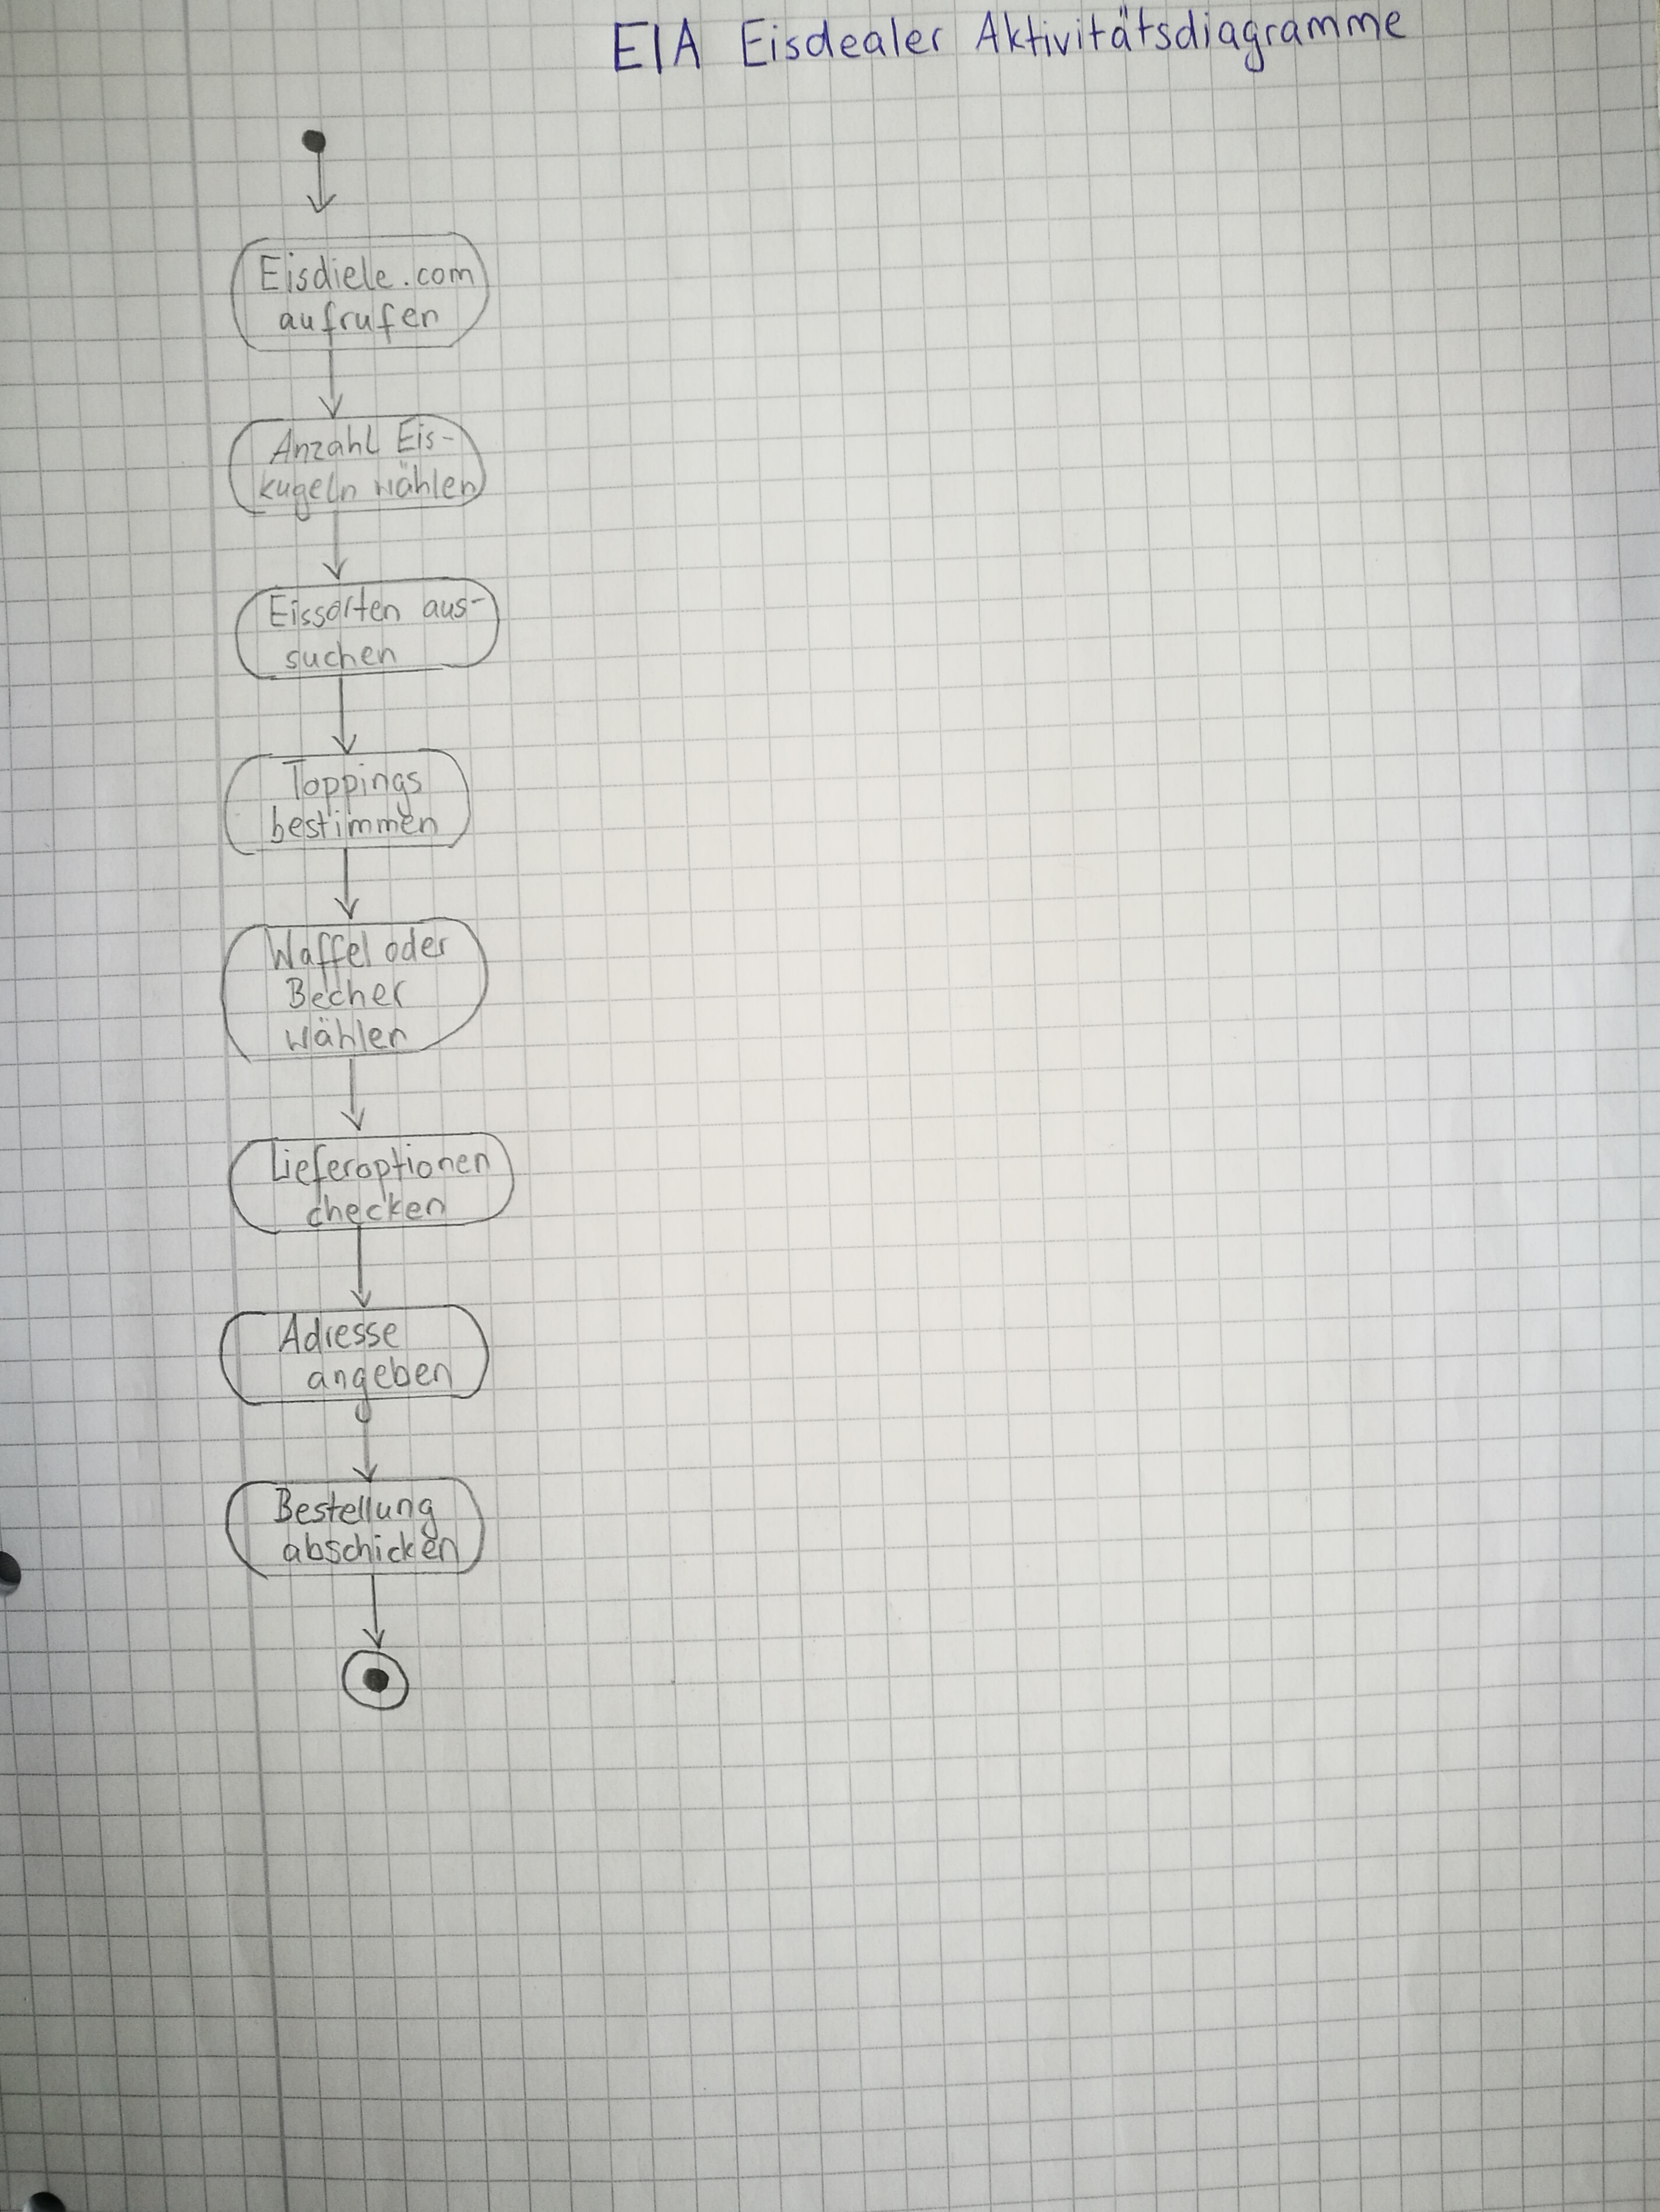 EIA Eisdealer Aktivitätsdiagramme
Eisdiele.com
aufrufen
Anzahl Eis-
kugeln wählen
Eissorten aus-
suchen
Toppings
bestimmen
Waffel oder
Becher
wählen
Lieferoptionen
checken
Adresse
angeben
Bestellung
abschicken